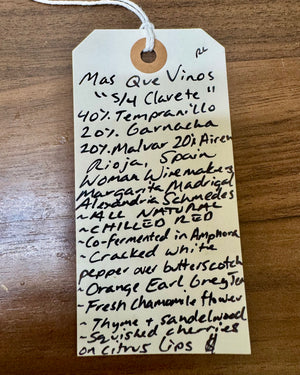 RL
Mas Que Vinos
"S/4 Clarete"
40% Tempranillo
20% Garnacha
20% Malvar 20% Airen
Rioja, Spain
Woman Winemaker
Margarita Madrigal
Alexandria Schmedes
~ALL NATURAL
~CHILLED RED
~Co-fermented in Amphora
~Cracked white
pepper over butterscotch
~Orange Earl Grey Tea
~Fresh chamomile flower
~Thyme + sandelwood
~Squished cherries
on citrus lips